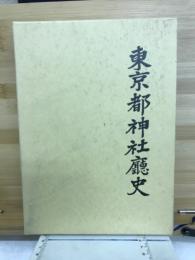 東京都神社廳史